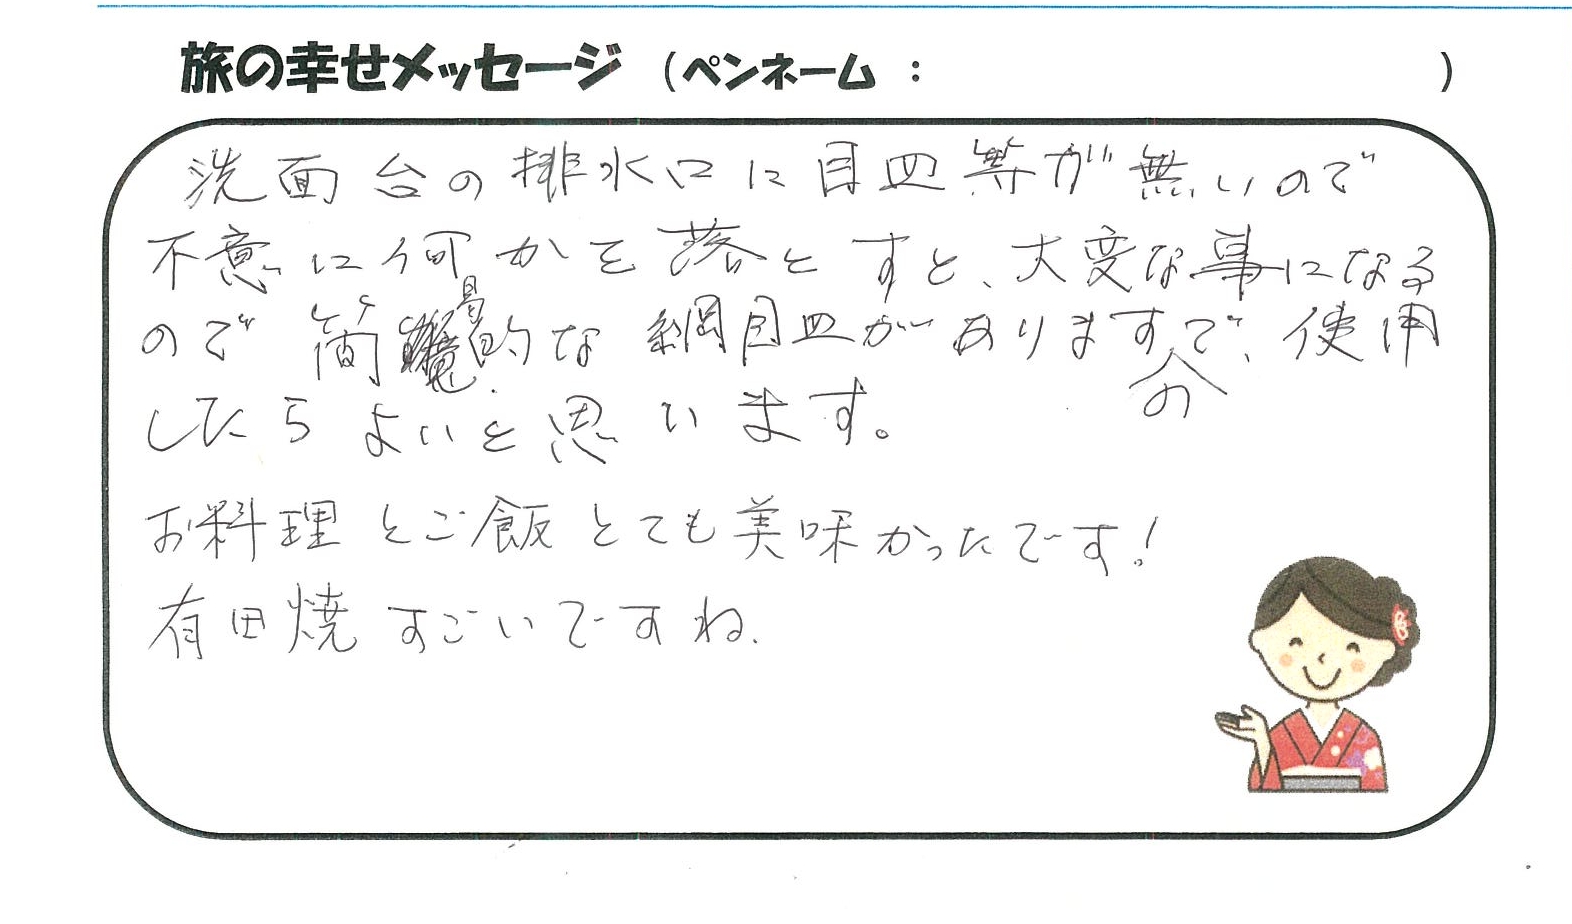 旅の幸せメッセージ (ペンネーム： )
洗面台の排水口に目皿等が無いので
不意に何かを落とすと、大変な事になる
ので簡易的な網目皿がありますので、使用
したらよいと思います。
お料理とご飯とても美味かったです!
有田焼すごいですね.